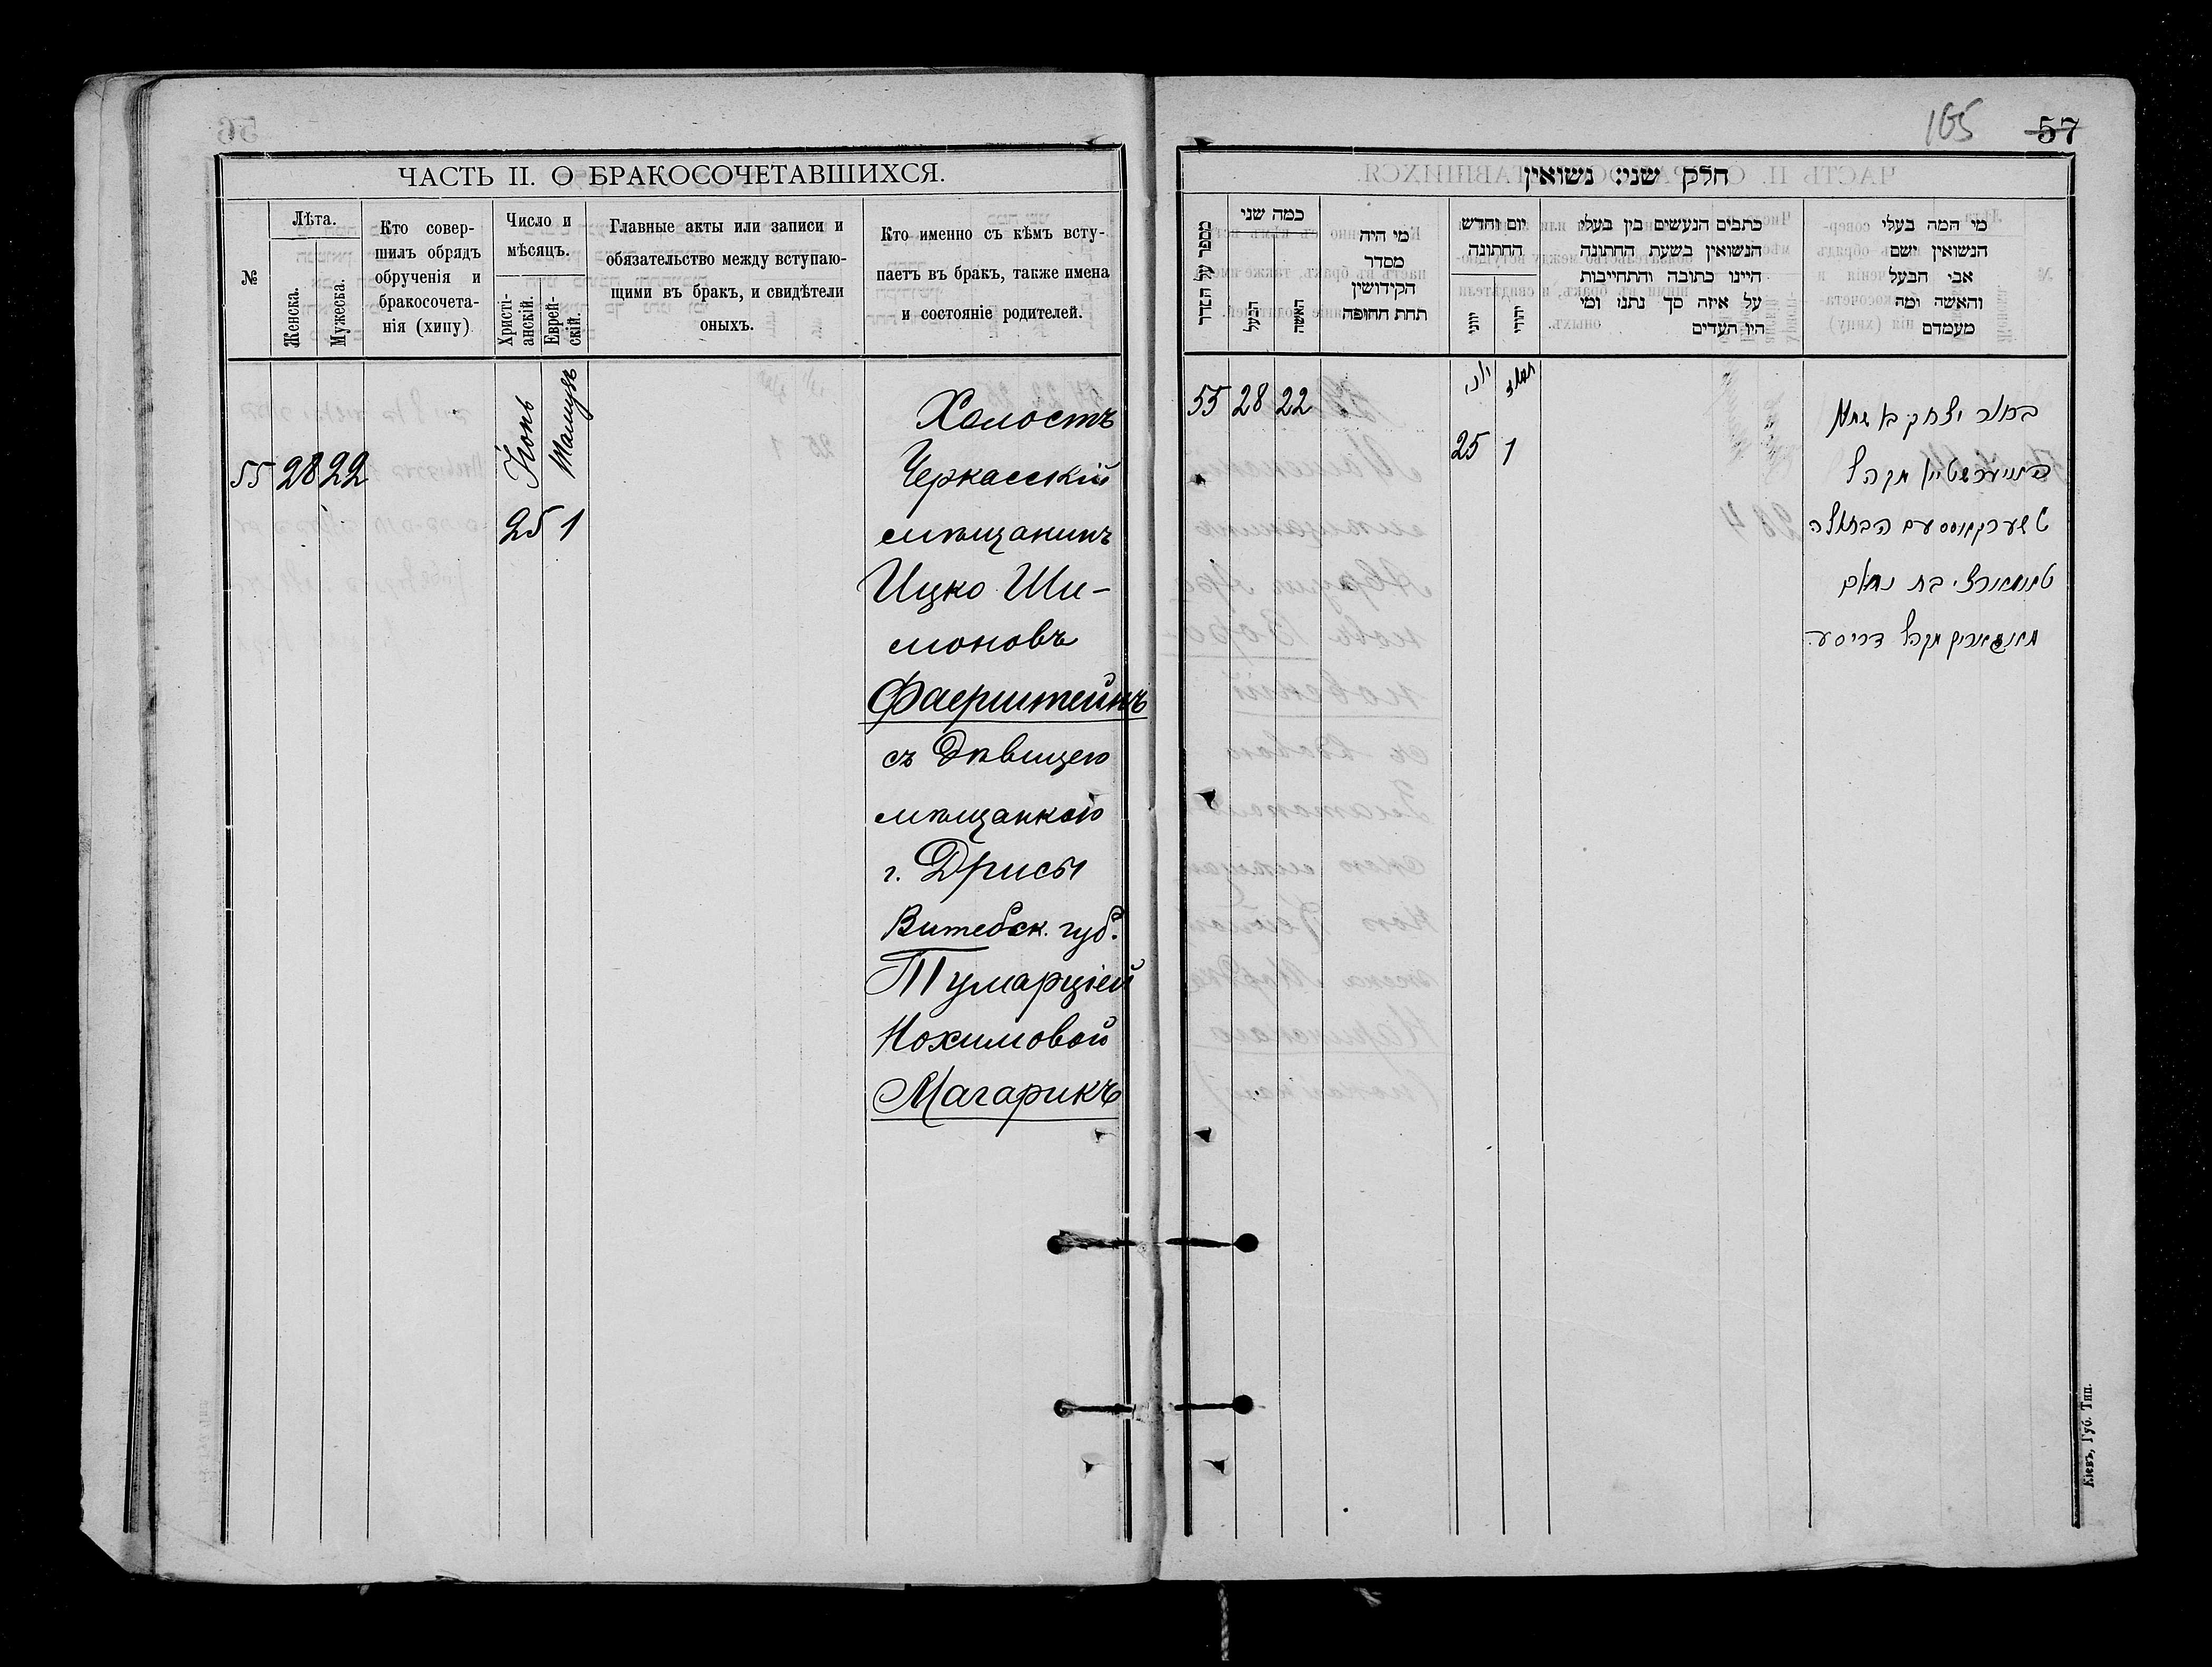 ЧАСТЬ II. О БРАКОСОЧЕТАВШИХСЯ.
№
Лѣта.
Женска.
Мужеска.
Кто совер-
шилъ обрядъ
обрученія и
бракосочета-
нія (хипу)
Число и
мѣсяцъ.
Христі-
анскій.
Еврей-
скій.
Главные акты или записи и
обязательство между вступаю-
щими въ бракъ, и свидѣтели
оныхъ.
Кто именно съ кѣмъ всту-
паетъ въ бракъ, также имена
и состояніе родителей.
55 28 22
Іюнь
25 1
Холостъ
Черкасскій
мѣщанинъ
Ицко Ши-
моновъ
Фаерштейнъ
съ Дѣвицею
мѣщанкою
г. Дрисы
Витебск. губ.
Тумарціей
Нохимовой
Магарикъ
165 57
חלק שני: נשואין
מספר על הסדר
כמה שני
הבעל
האשה
מי היה
מסדר
הקידושין
תחת החופה
יום וחדש
החתונה
יוני
יהודי
כתבים הנעשים בין בעלי
הנשואין בשעת החתונה
היינו כתובה והתחייבות
על איזה סך נתנו ומי
היו העדים
מי המה בעלי
הנשואין ושם
אבי הבעל
והאשה ומה
מעמדם
55 28 22
יוני
תמוז
25 1
בחור יצחק ב שמע
פייערשטיין מקהל
טשערקאסס עם הבתולה
טומארצי בת נחום
מאגאריק מקהל דריסע
Кіевъ, Губ. Тип.